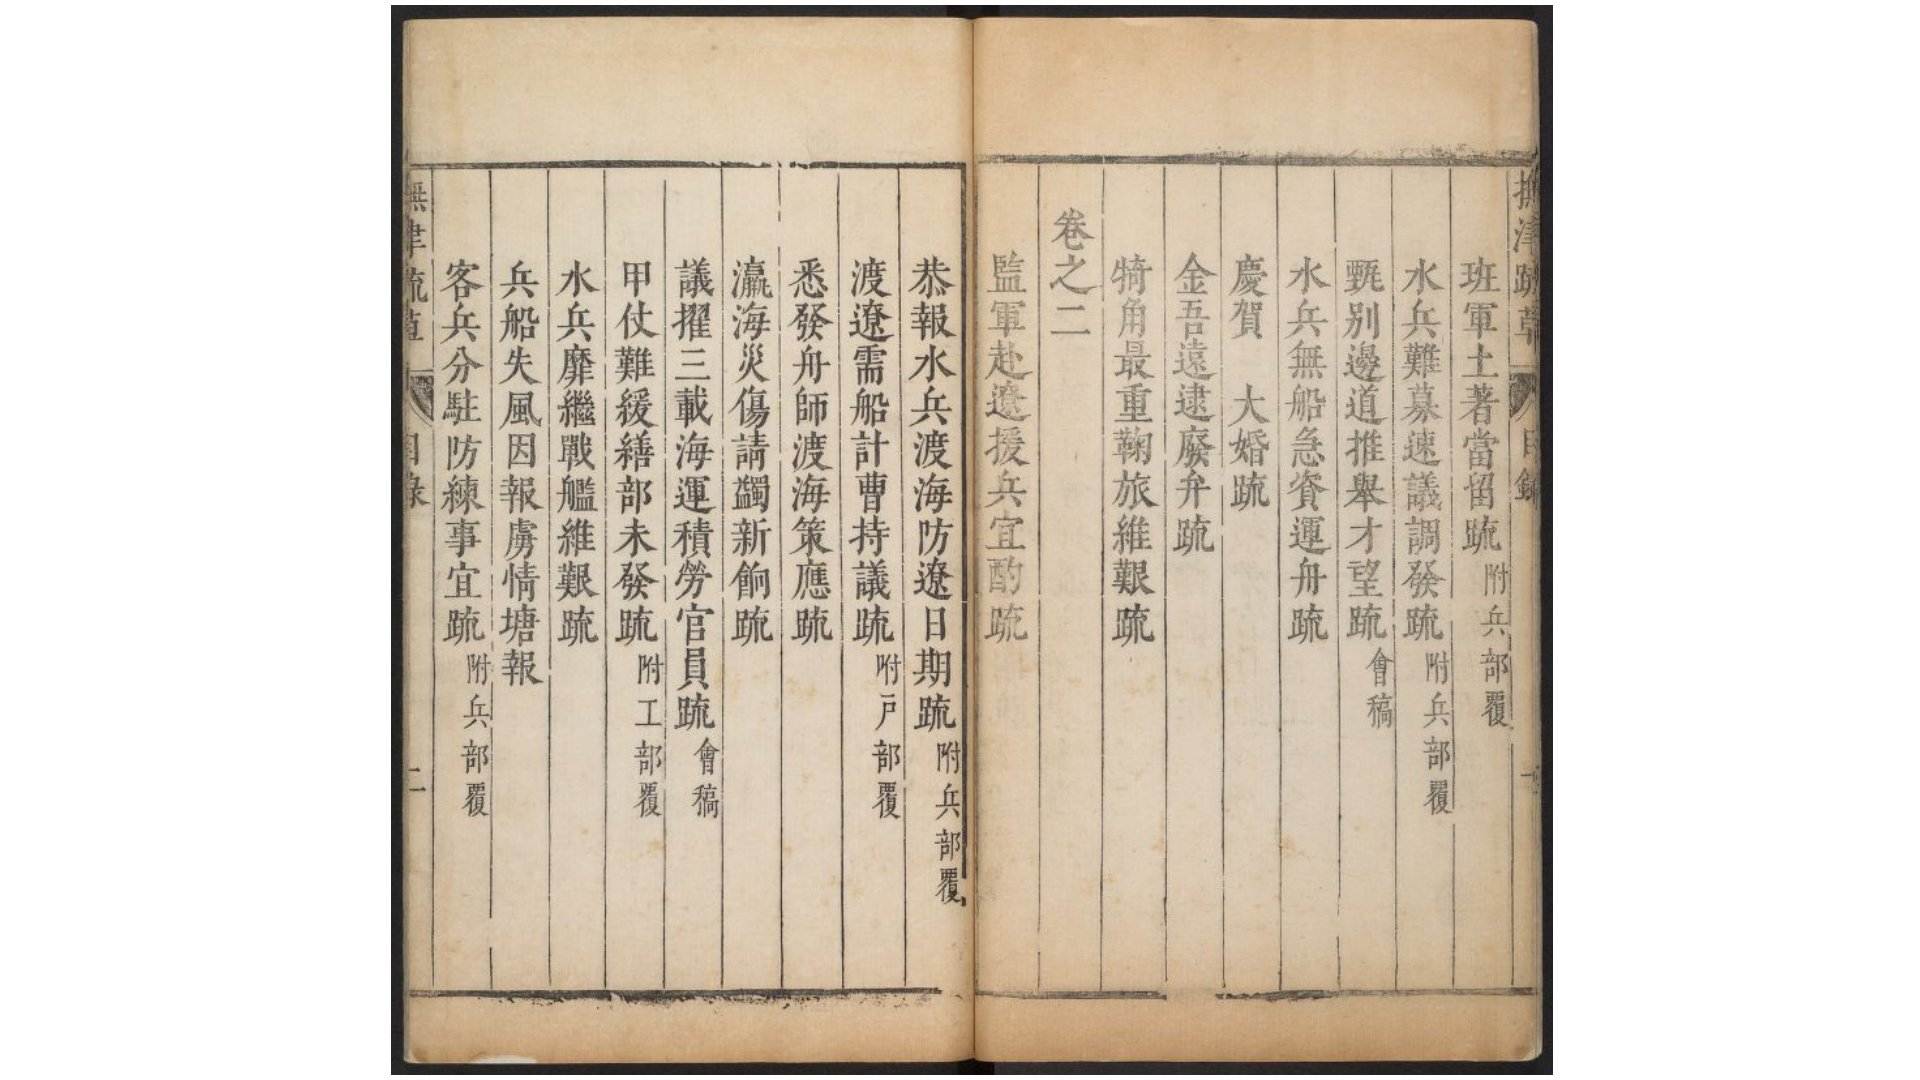 撫津疏草 目錄 一
班軍土著當留疏附兵部覆
水兵難募速議調發疏附兵部覆
甄别邊道推舉才望疏會稿
水兵無船急資運舟疏
慶賀 大婚疏
金吾遠逮廢弁疏
犄角最重鞠旅維艱疏
卷之二
監軍赴遼援兵宜酌疏
恭報水兵渡海防遼日期疏附兵部覆
渡遼需船計曹持議疏附戸部覆
悉發舟師渡海策應疏
瀛海災傷請蠲新餉疏
議擢三載海運積勞官員疏會稿
甲仗難緩繕部未發疏附工部覆
水兵靡繼戰艦維艱疏
兵船失風因報虜情塘報
客兵分駐防練事宜疏附兵部覆
撫津疏草 目錄 二